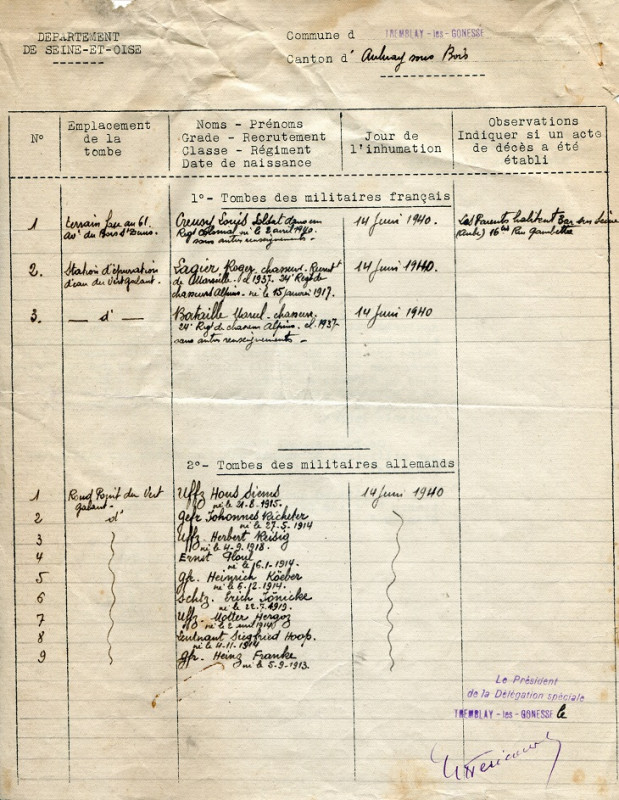 DEPARTEMENT
DE SEINE-ET-OISE
Commune d TREMBLAY - les - GONESSE
Canton d' Aulnay sous Bois
N°
Emplacement
de la
tombe
Noms - Prénoms
Grade - Recrutement
Classe - Régiment
Date de naissance
Jour de
l'inhumation
Observations
Indiquer si un acte
de décès a été
établi
1°- Tombes des militaires français
1
terrain face au 61
Av. du
Creusy Louis Soldat dans un
Régt Colonial né le 2 avril
sans autres renseignements.
14 Juin 1940
Les Parents habitent Bar sur Seine
(Aube) 16 bis Rue Gambetta
2.
Station d'épuration
d'eau du Vertgalant.
Lagier Roger, chasseur. Recrut
de Marseille. cl 1937. 24 Régt de
chasseurs Alpins. né le 15 janvier 1917.
14 Juin 1940.
3.
d°
Bataille Marcel - chasseur
24 Rég de chasseurs Alpins. cl. 1937
sans autres renseignements.
14 Juin 1940
2°- Tombes des militaires allemands
1
Rond Point du Vert
galant
Uffz Hans Siems
né le 31.8.1915.
14 Juin 1940
2
d°
Gefr Johannes Richter
né le 27.5.1914
3
Uffz Herbert Reisig
né le 4.9.1918.
4
Ernst
né le 16.1.1914.
5
gfr. Heinrich Köeber
né le 6.12.1914.
6
Schtz. Erich Jönicke
né le 22.7.1919.
7
Uffz
né le 2 mai 1914
8
Leutnant Siegfried Hoop.
né le 4.11.1914
9
gfr. Heinz Franke
né le 5.9.1913.
Le Président
de la Délégation spéciale
TREMBLAY - les - GONESSE le